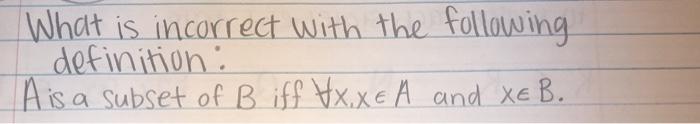 What is incorrect with the following
definition:
A is a subset of B iff ∀x, x ∈ A and x ∈ B.